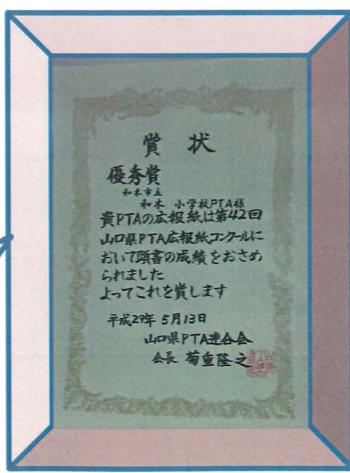 賞状
優秀賞
和木市立
和木 小学校PTA様
貴PTAの広報紙は第42回
山口県PTA広報紙コンクールに
おいて頭書の成績をおさめ
られました
よってこれを賞します
平成29年5月13日
山口県PTA連合会
会長 菊重隆之